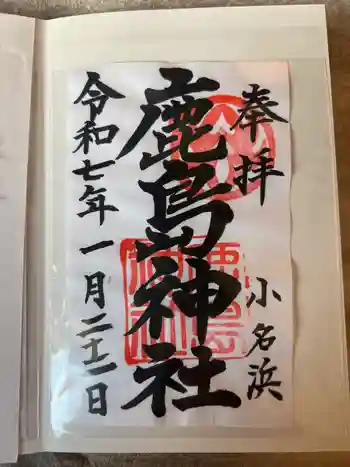 奉拝
小名浜
鹿島神社
令和七年一月二十一日